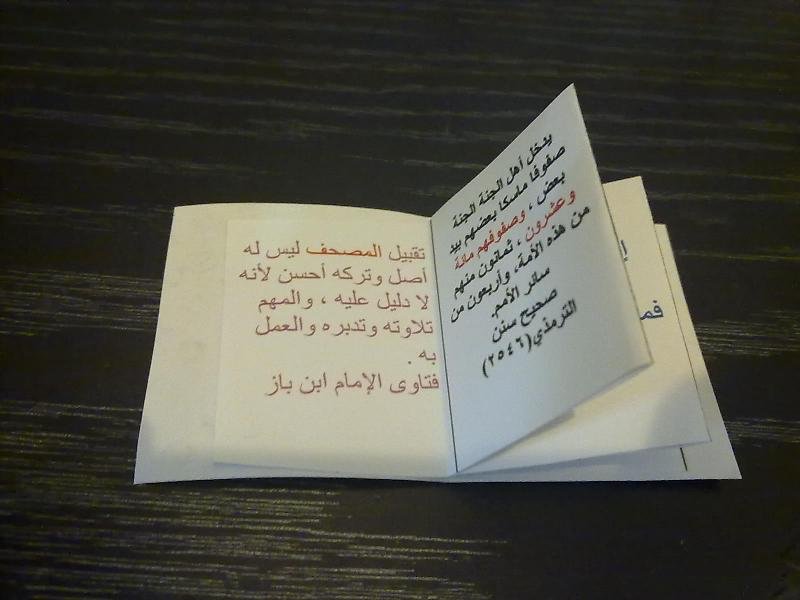 يدخل أهل الجنة الجنة
صفوفا ماسكا بعضهم بيد
بعض ، وصفوفهم مائة
وعشرون ، ثمانون منهم
من هذه الأمة، وأربعون من
سائر الأمم.
صحيح سنن
الترمذي(٢٥٤٦)
تقبيل المصحف ليس له
أصل وتركه أحسن لأنه
لا دليل عليه ، والمهم
تلاوته وتدبره والعمل
به .
فتاوى الإمام ابن باز